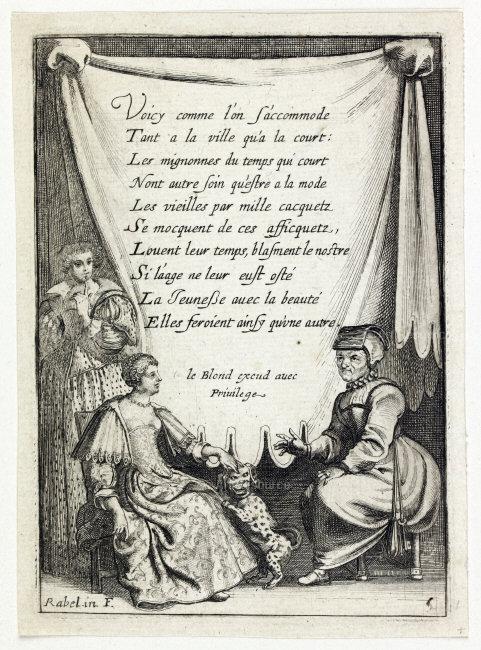 Voicy comme l'on s'accommode
Tant a la ville qu'a la court:
Les mignonnes du temps qui court
Nont autre soin qu'estre a la mode
Les vieilles par mille cacquetz
Se mocquent de ces afficquetz,
Louent leur temps, blasment le nostre
Si l'aage ne leur eust osté
La Jeunesse avec la beauté
Elles feroient ainsy qu'vne autre.
le Blond excud avec
Priuilege
Rabel in. F.